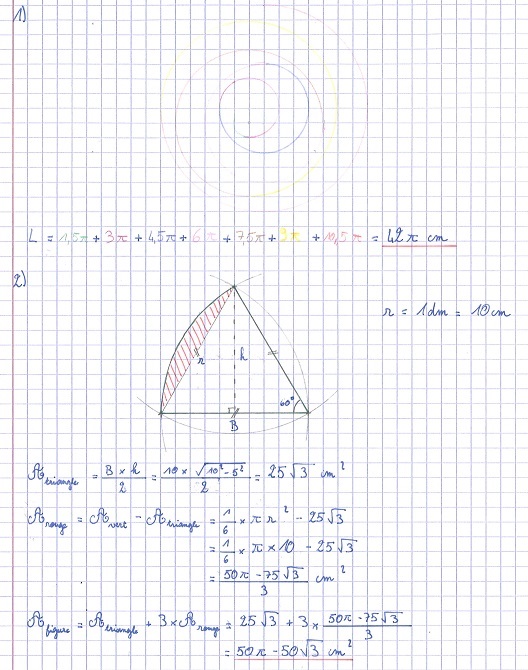 1)
L = 1,5π + 3π + 4,5π + 6π + 7,5π + 9π + 10,5π = 42π cm
2)
r = 1dm = 10cm
r
h
60°
B
A triangle = B × h / 2 = 10 × √(10² - 5²) / 2 = 25√3 cm²
A rouge = A vert - A triangle = 1/6 × π r² - 25√3
= 1/6 × π × 10 - 25√3
= (50π - 75√3) / 3 cm²
A figure = A triangle + 3 × A rouge = 25√3 + 3 × (50π - 75√3) / 3
= 50π - 50√3 cm²